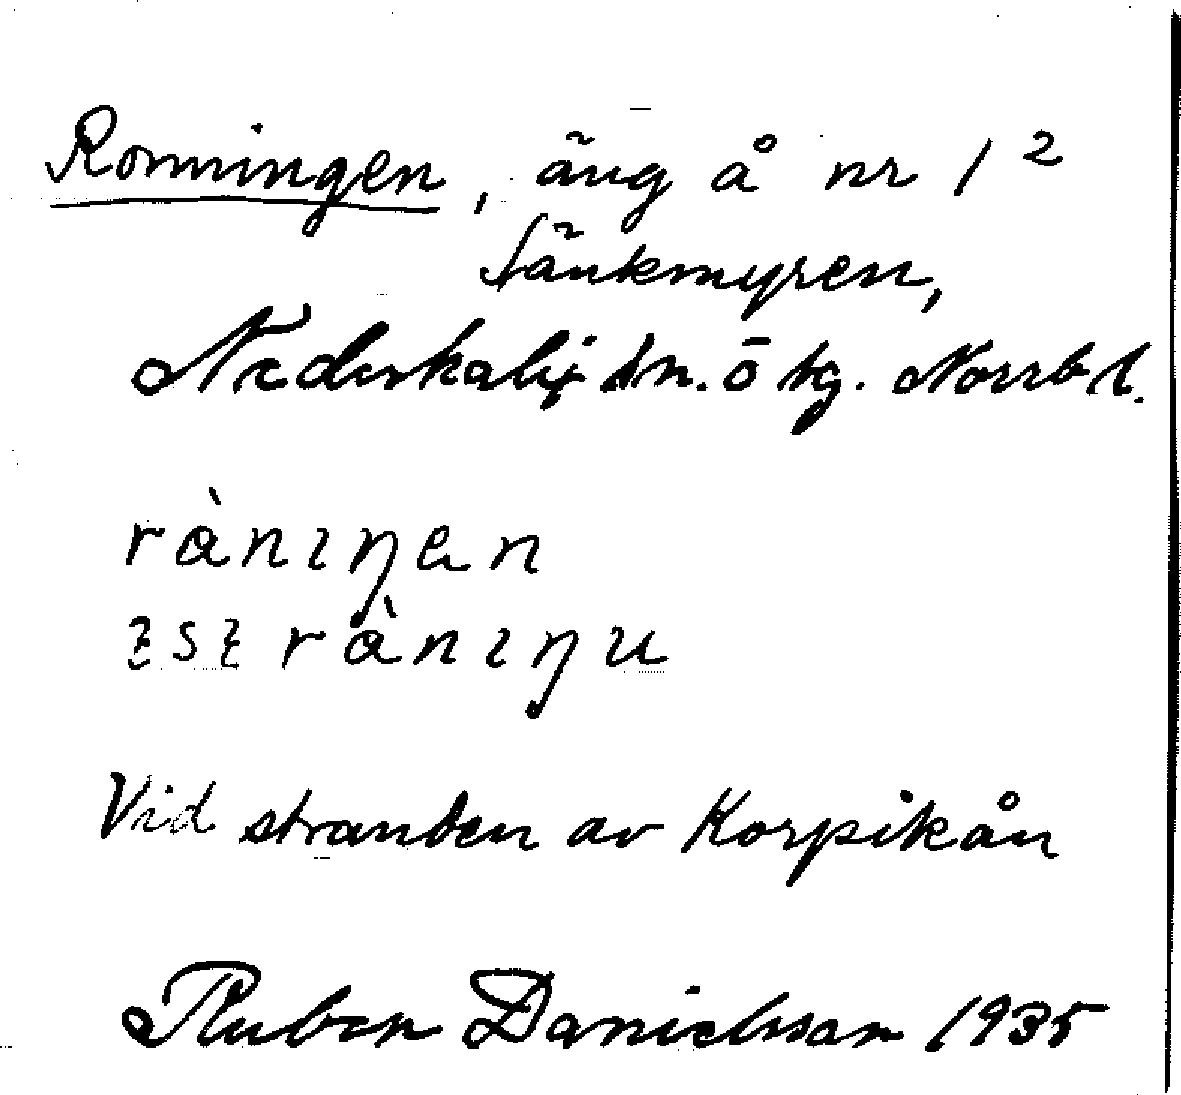 Ronningen, äng å nr 1²
Sänkmyren,
Nederkalix sn. ö tg. Norrb l.
rὰnɪŋen
rὰnɪŋu
Vid stranden av Korpikån
Ruben Danielsson 1935